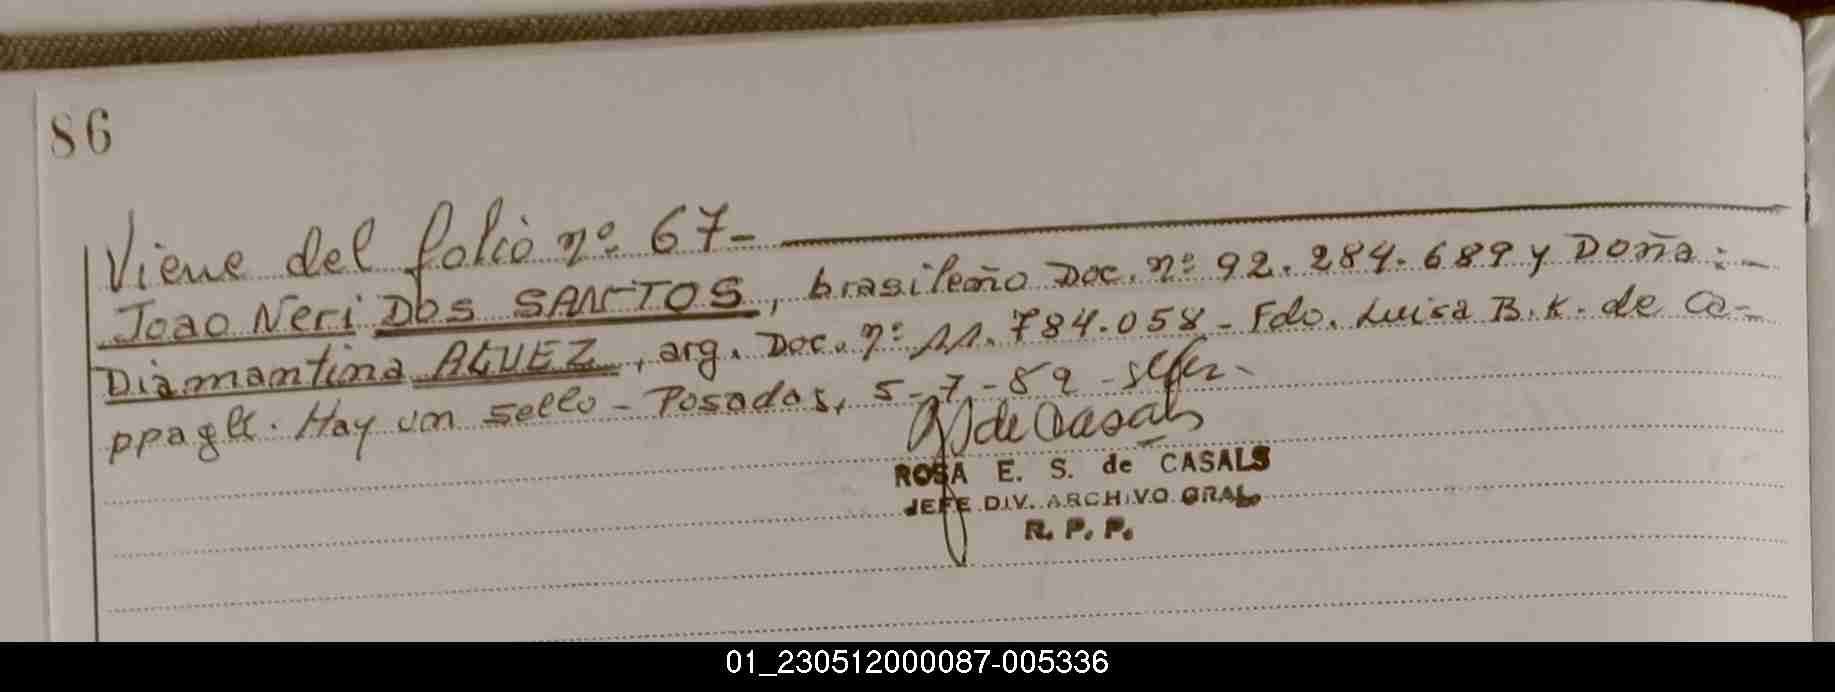 86
Viene del folio nº 67-
Joao Neri DOS SANTOS, brasileño Doc. nº 92.284.689 y Doña:-
Diamantina ALVEZ, arg. Doc. nº 11.784.058 - Fdo. Luisa B.K. de Ca-
ppagli. Hay un sello - Posadas, 5-7-89 -
de Casals
ROSA E. S. de CASALS
JEFE DIV. ARCHIVO GRAL.
R. P. P.
01_230512000087-005336